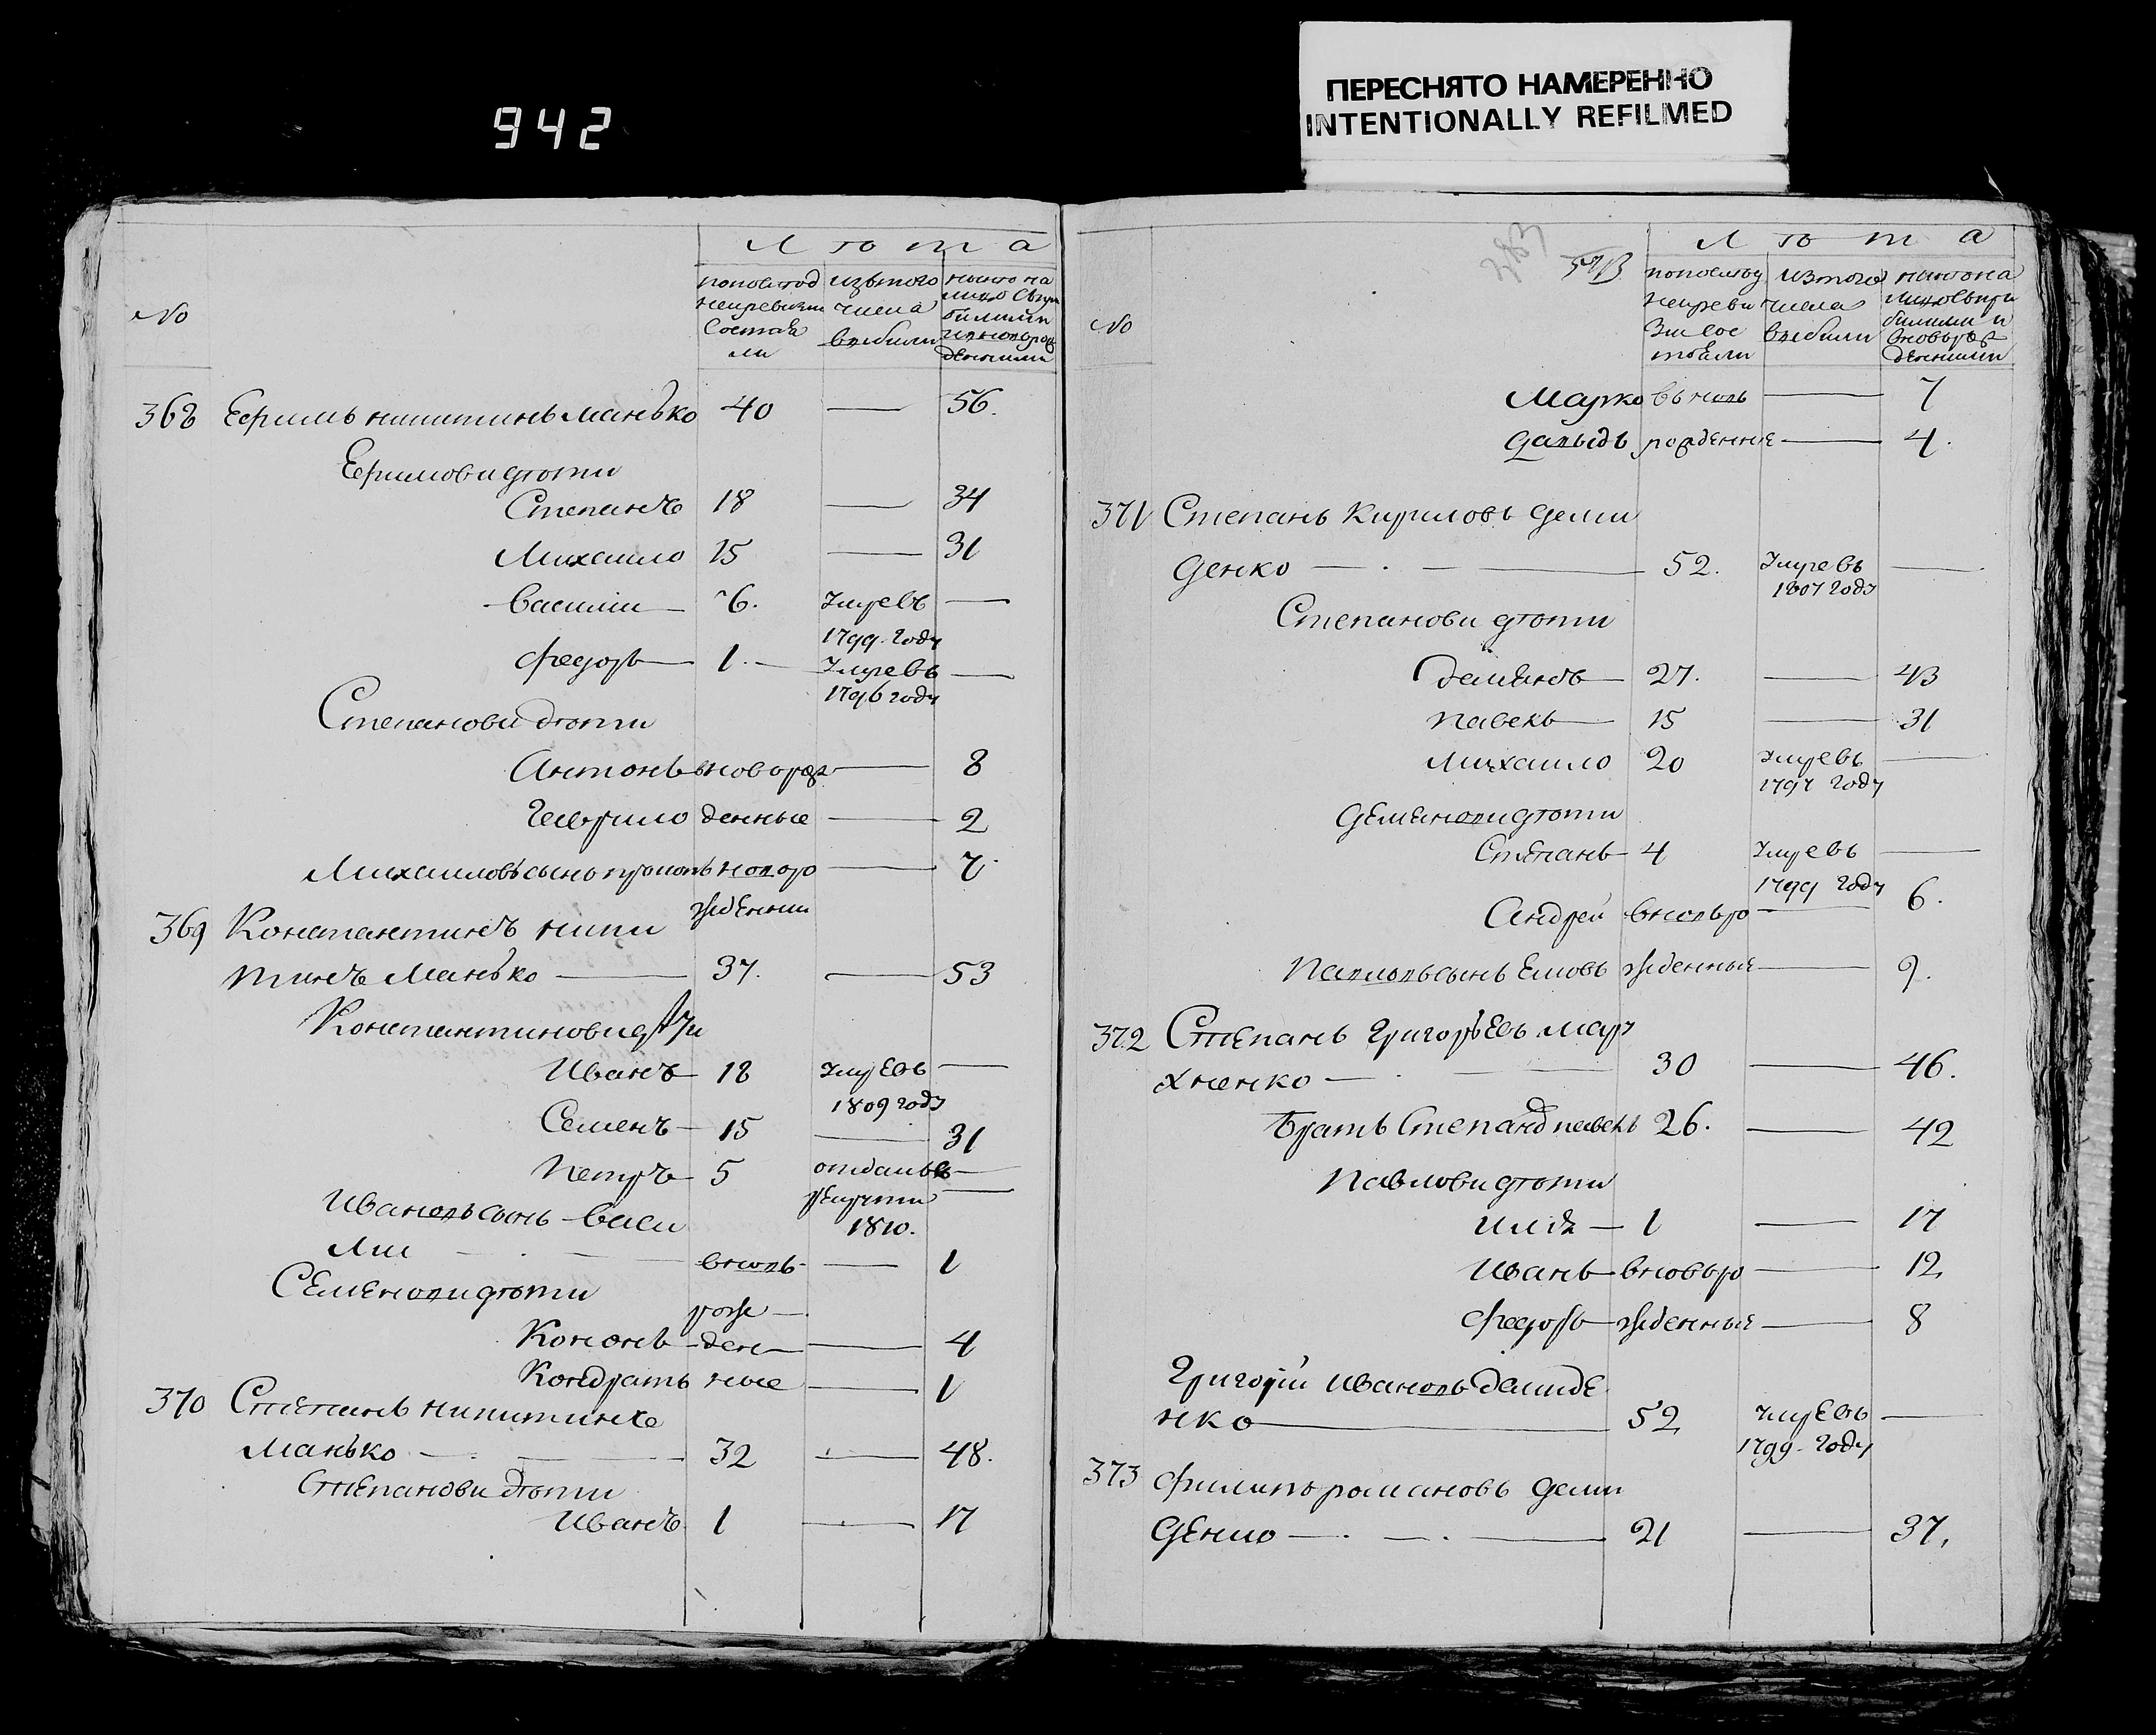 942
ПЕРЕСНЯТО НАМЕРЕННО
INTENTIONALLY REFILMED
№
Лѣта
по последней ревизии состояли
изъ того числа выбыли
ныне на лицо
368 Ефимъ никитинъ манько 40 — 56.
Ефимови дѣти
Степанъ 18 — 34
Михаило 15 — 31
василий — 6. умревъ —
1799. году
федоръ — 1. — умревъ —
1796 году
Степанови дѣти
Антонъ вновoрож — 8
Гаврило денные — 2
Михаиловъ сынъ новоро — 7.
жденни
369 Константинъ ники
тинъ Манько — 37. — 53
Константинови дѣти
Иванъ — 18 умревъ —
1809 году
Семенъ — 15 — 31
Петръ — 5 отданъ въ —
рекруты —
1810.
Ивановъ сынъ васи
лий — вновь — 1
Семенови дѣти
рож —
Кононъ — ден — 4
Кондратъ ные — 1
370 Степанъ никитинъ
манько — 32 — 48.
Степанови дѣти
Иванъ 1 — 17
№
Лѣта
по последней ревизии состояли
изъ того числа выбыли
Марко вновь — 7
Давыдъ рожденние — 4.
371 Степанъ Кириловъ деми
денко — 52. умревъ —
1807 году
Степанови дѣти
Демянъ — 27. — 43
павелъ — 15 — 31
михаило 20 умревъ —
1797 году
Деменови дѣти
Степанъ — 4 умревъ —
1799 году
Андрей вновьро — 6.
Павловъ сынъ жденные — 9.
372 Степанъ Григорьевъ мар
хненко — 30 — 46.
Братъ Степана павелъ 26. — 42
Павлови дѣти
илья — 1 — 17
Иванъ — вновьро — 12
федоръ — жденные — 8
Григорий ивановъ демиде
нко — 52 умревъ —
1799. году
373 филипъ романовъ деми
денко — 21 — 37.